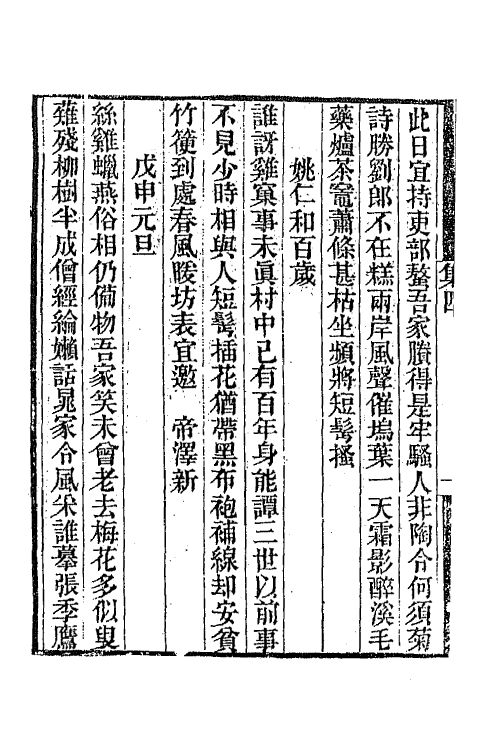 此日宜持吏部螯吾家賸得是牢騷人非陶令何須菊
詩勝劉郎不在糕兩岸風聲催塢葉一天霜影醉溪毛
藥爐茶竈蕭條甚枯坐頻將短髩搔
姚仁和百歲
誰訝雞窠事未眞村中已有百年身能譚三世以前事
不見少時相與人短髩插花猶帶黑布袍補線却安貧
竹筼到處春風暖坊表宜邀 帝澤新
戊申元旦
絲雞蠟燕俗相仍備物吾家笑未曾老去梅花多似叟
薙殘柳樹半成僧經綸嬾話晁家令風米誰摹張季鷹
集四
一